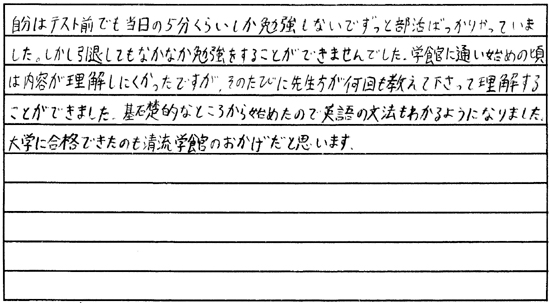 自分はテスト前でも当日の5分くらいしか勉強しないでずっと部活ばっかりやっていま
した。しかし引退してもなかなか勉強をすることができませんでした。学館に通い始めの頃
は内容が理解しにくかったですが、そのたびに先生方が何回も教えて下さって理解する
ことができました。基礎的なところから始めたので英語の文法もわかるようになりました。
大学に合格できたのも清流学館のおかげだと思います。